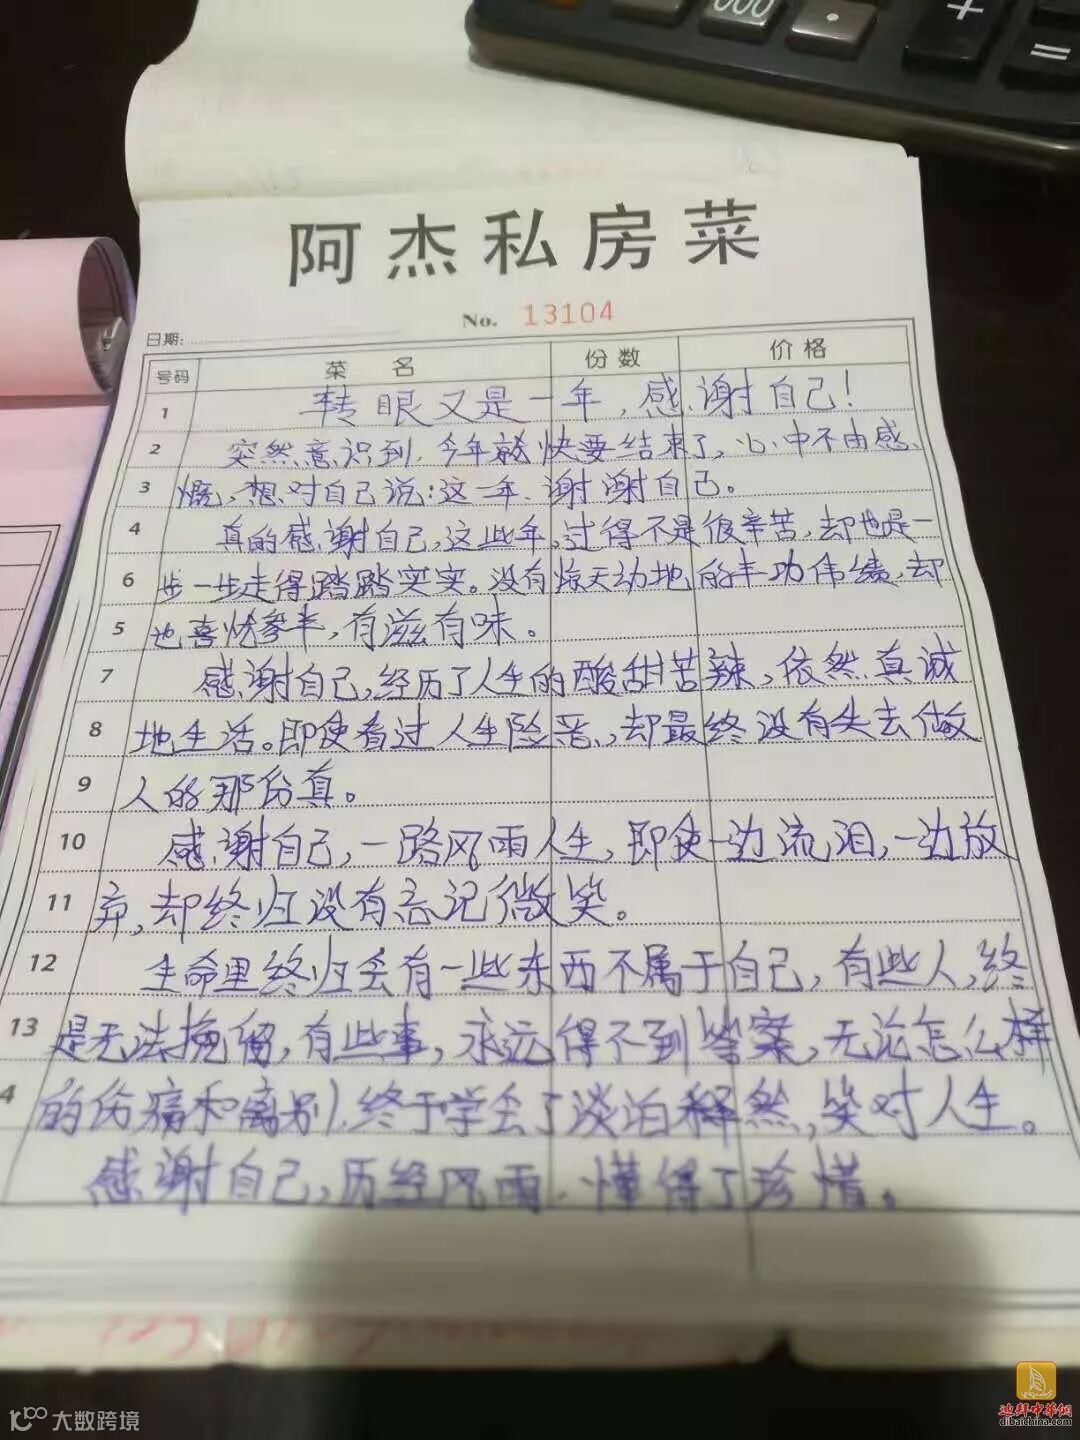 000
·
+
=
阿杰私房菜
No. 13104
日期:
号码 菜名 份数 价格
1 转眼又是一年,感谢自己!
2 突然意识到,今年就快要结束了,心中不由感
3 慨,想对自己说:这一年,谢谢自己。
4 真的感谢自己,这些年,过得不是很辛苦,却也是一
6 步一步走得踏踏实实。没有惊天动地的丰功伟绩,却
5 也喜忧参半,有滋有味。
7 感谢自己,经历了人生的酸甜苦辣,依然真诚
8 地生活。即使看过人生险恶,却最终没有失去做
9 人的那份真。
10 感谢自己,一路风雨人生,即使一边流泪,一边放
11 弃,却终归没有忘记微笑。
12 生命里终归会有一些东西不属于自己,有些人,终
13 是无法挽留,有些事,永远得不到答案,无论怎么样
4 的伤痛和离别,终于学会了淡泊释然,笑对人生。
感谢自己,历经风雨,懂得了珍惜。
大数跨境
迪拜中华网
dibaichina.com